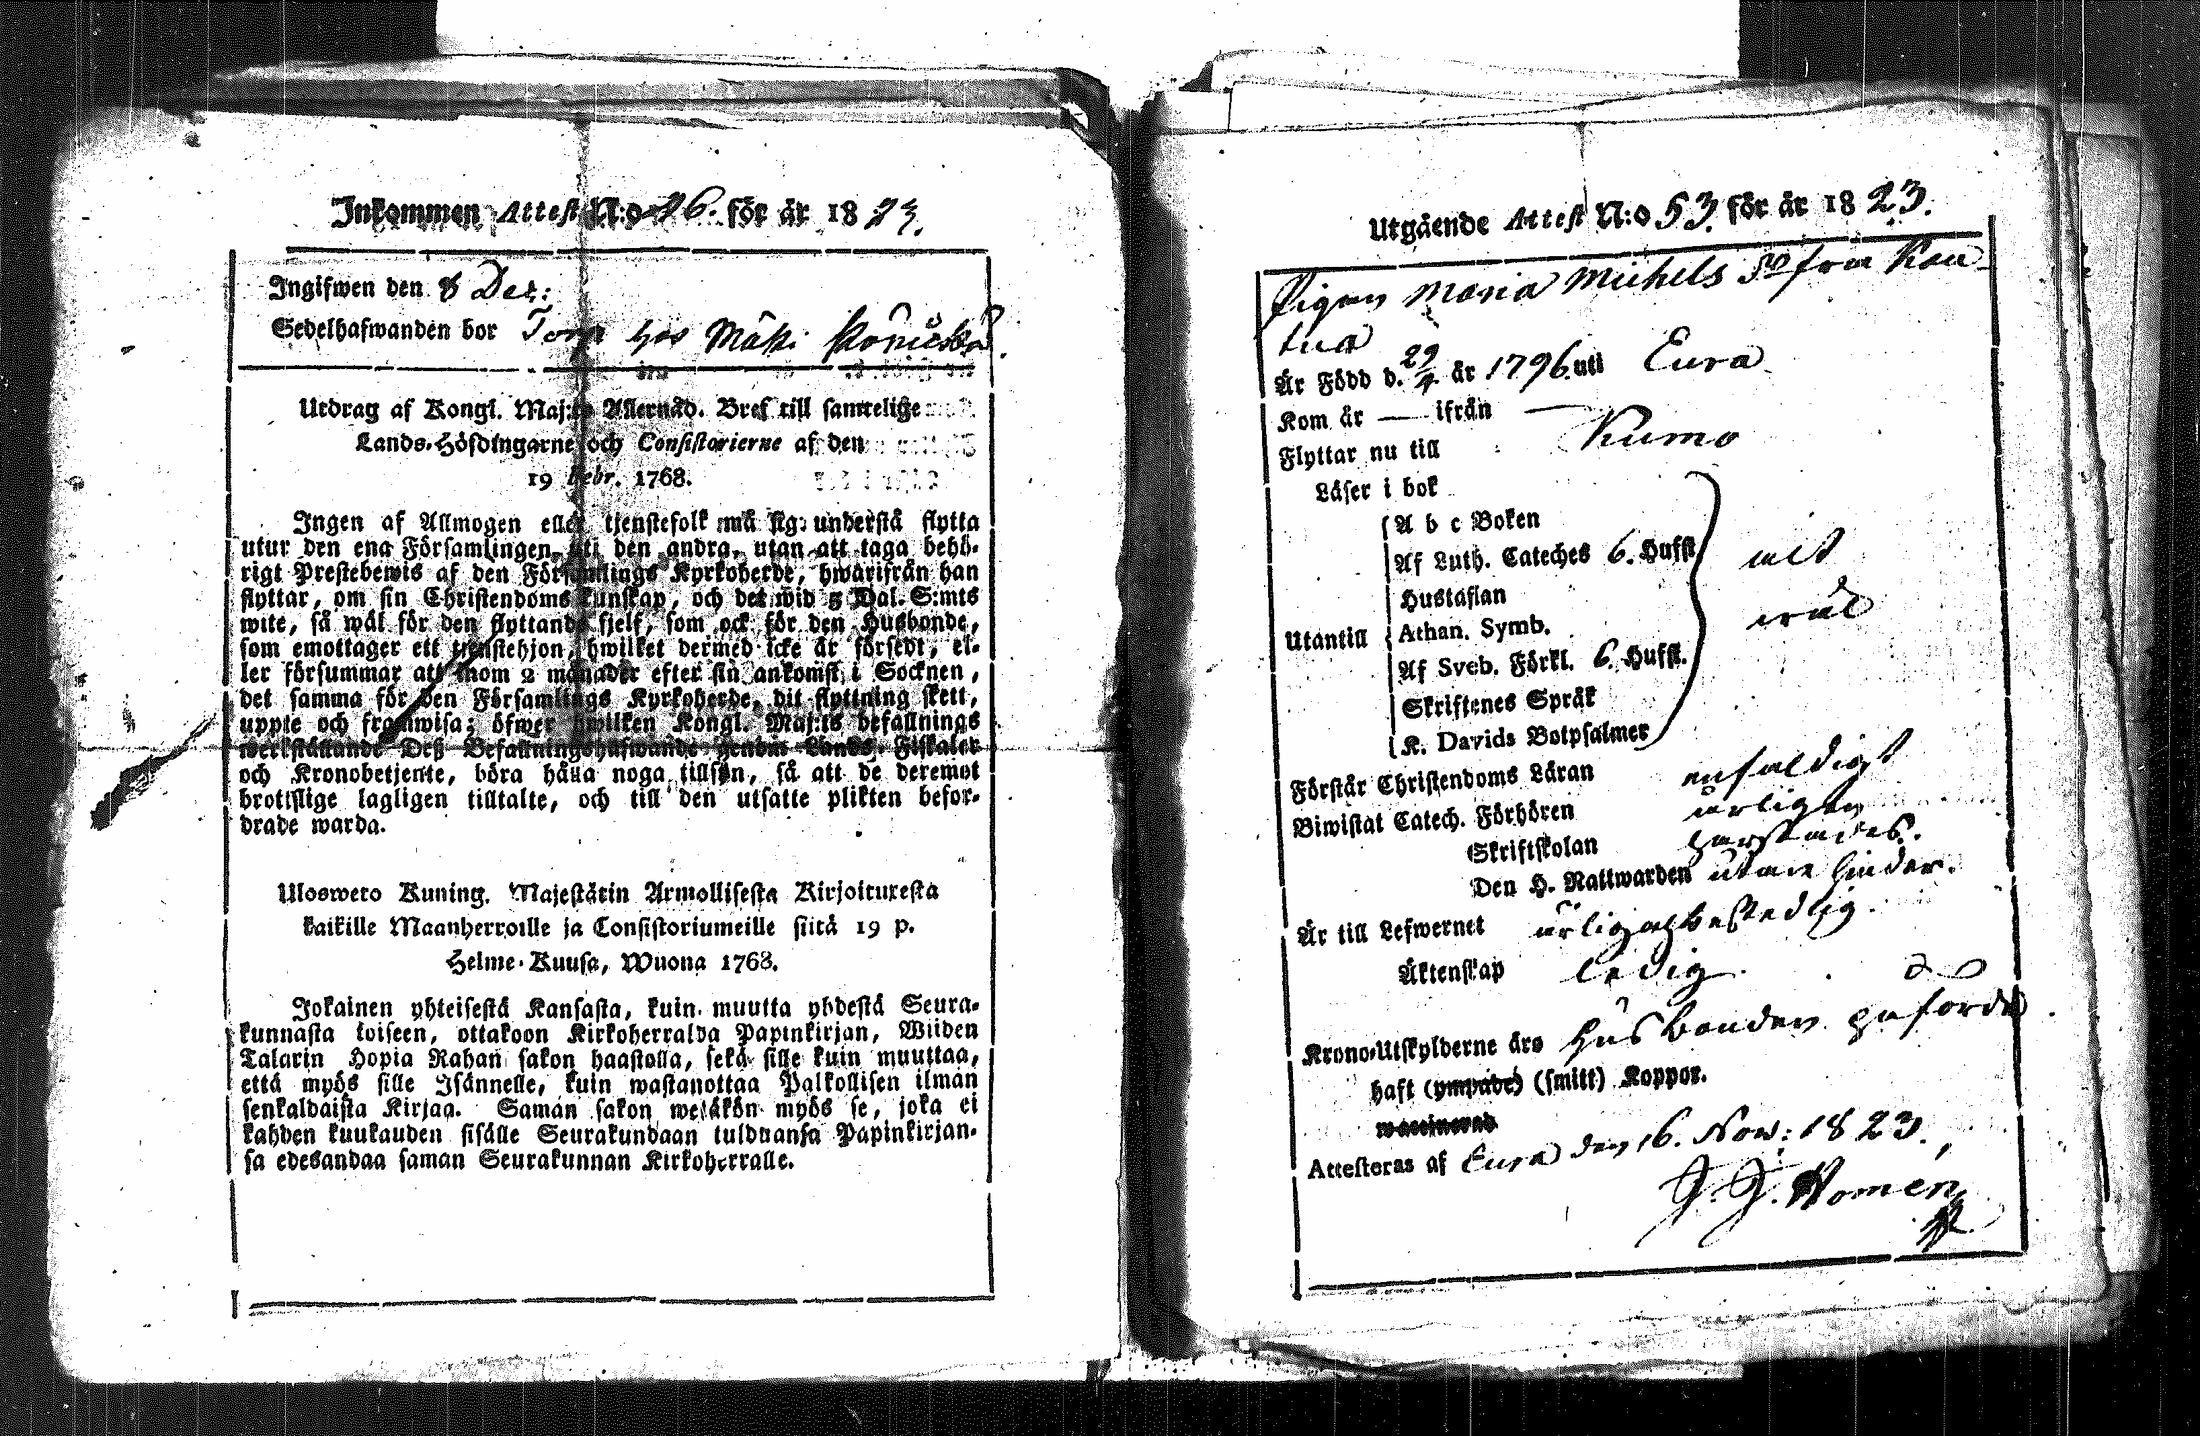 Inkommen Attest N:o 26. för år 1823.
Ingifwen den 8 Dec:
Sedelhafwanden bor Torp hos Mäki
Utdrag af Kongl. Maj:ts Allernåd. Bref till samtelige
Lands-Höfdingarne och Consistorierne af den
19 Febr. 1768.
Ingen af Allmogen eller tjenstefolk må sig understå flytta
utur den ena Församlingen uti den andra, utan att taga behö-
rigt Prestebewis af den Församlings Kyrkoherde, hwarifrån han
flyttar, om sin Christendoms kunskap, och det wid 5 Dal. S:mts
wite, så wäl för den flyttande sjelf, som ock för den Husbonde,
som emottager ett tjenstehjon, hwilket dermed icke är försedt, el-
ler försummar att inom 2 månader efter sin ankomst i Socknen,
det samma för den Församlings Kyrkoherde, dit flyttning skett,
uppte och framwisa; öfwer hwilken Kongl. Maj:ts befallnings
werkställande Deß Befallningshafwande genom Lands-Fiskaler
och Kronobetjente, böra hålla noga tillsyn, så att de deremot
brottslige lagligen tilltalte, och till den utsatte plikten befor-
drade warda.
Ulosweto Kuning. Majestätin Armollisesta Kirjoituxesta
kaikille Maanherroille ja Consistoriumeille siitä 19 p.
Helme-Kuusa, Wuona 1768.
Jokainen yhteisestä Kansasta, kuin muutta yhdestä Seura-
kunnasta toiseen, ottakoon Kirkoherralda Papinkirjan, Wiiden
Talarin Hopia Rahan sakon haastolla, sekä sille kuin muuttaa,
että myös sille Isännelle, kuin wastanottaa Palkollisen ilman
senkaldaista Kirjaa. Saman sakon wetäkön myös se, joka ei
kahden kuukauden sisälle Seurakundaan tulduansa Papinkirjan-
sa edesandaa saman Seurakunnan Kirkoherralle.
Utgående Attest N:o 53 för år 1823.
Pigan Maria Michels dr från Kau-
tua
Är Född d. 29/4 år 1796. uti Eura
Kom år — ifrån —
Flyttar nu till Kumo
Läser i bok
A b c Boken
Af Luth. Cateches 6. Hufst.
Hustaflan
Utantill Athan. Symb.
Af Sveb. Förkl. 6. Hufst.
Skriftenes Språk
K. Davids Botpsalmer
wäl
Förstår Christendoms Läran enfaldigt
Biwistat Catech. Förhören årligen
Skriftskolan
Den H. Nattwarden utan hinder.
Är till Lefwernet
Äktenskap ledig.
Krono-Utskylderne äro husbonden påförde
haft (ympade) (smitt) Koppor.
waccinerad
Attesteras af Eura den 16. Nov: 1823.
J. J. Homén